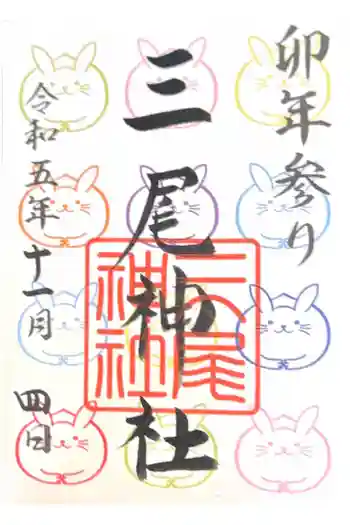 卯年参り
三尾神社
三尾神社
令和五年十一月四日